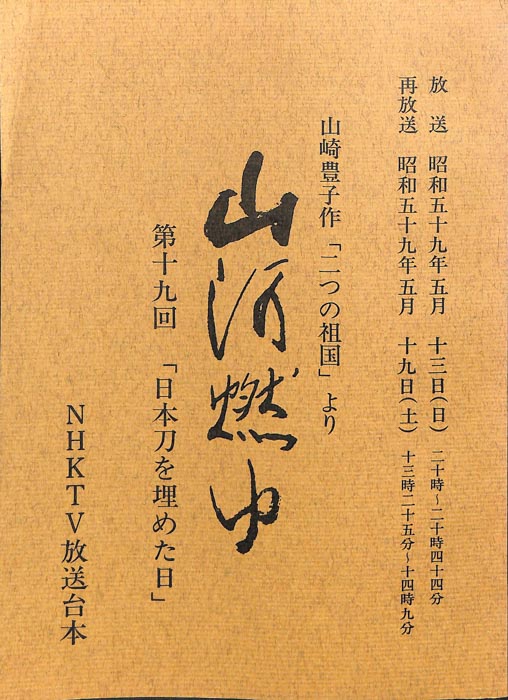 放送 昭和五十九年五月 十三日(日) 二十時~二十時四十四分
再放送 昭和五十九年五月 十九日(土) 十三時二十五分~十四時九分
山崎豊子作「二つの祖国」より
山河燃ゆ
第十九回 「日本刀を埋めた日」
NHKTV放送台本